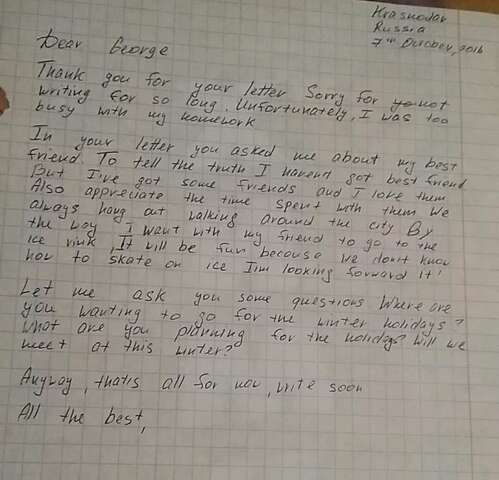 Krasnodar
Russia
7th October, 2016
Dear George
Thank you for your letter Sorry for not
writing for so long. Unfortunately, I was too
busy with my homework
In your letter you asked me about my best
friend. To tell the truth I haven't got best friend
But I've got some friends and I love them
Also appreciate the time spent with them We
always hang out walking around the city By
the way I want with my friend to go to the
ice rink, It will be fun because we don't know
how to skate on ice I'm looking forward it!
Let me ask you some questions Where are
you wanting to go for the winter holidays?
What are you planning for the holidays? Will we
meet at this winter?
Anyway, that's all for now, write soon
All the best,